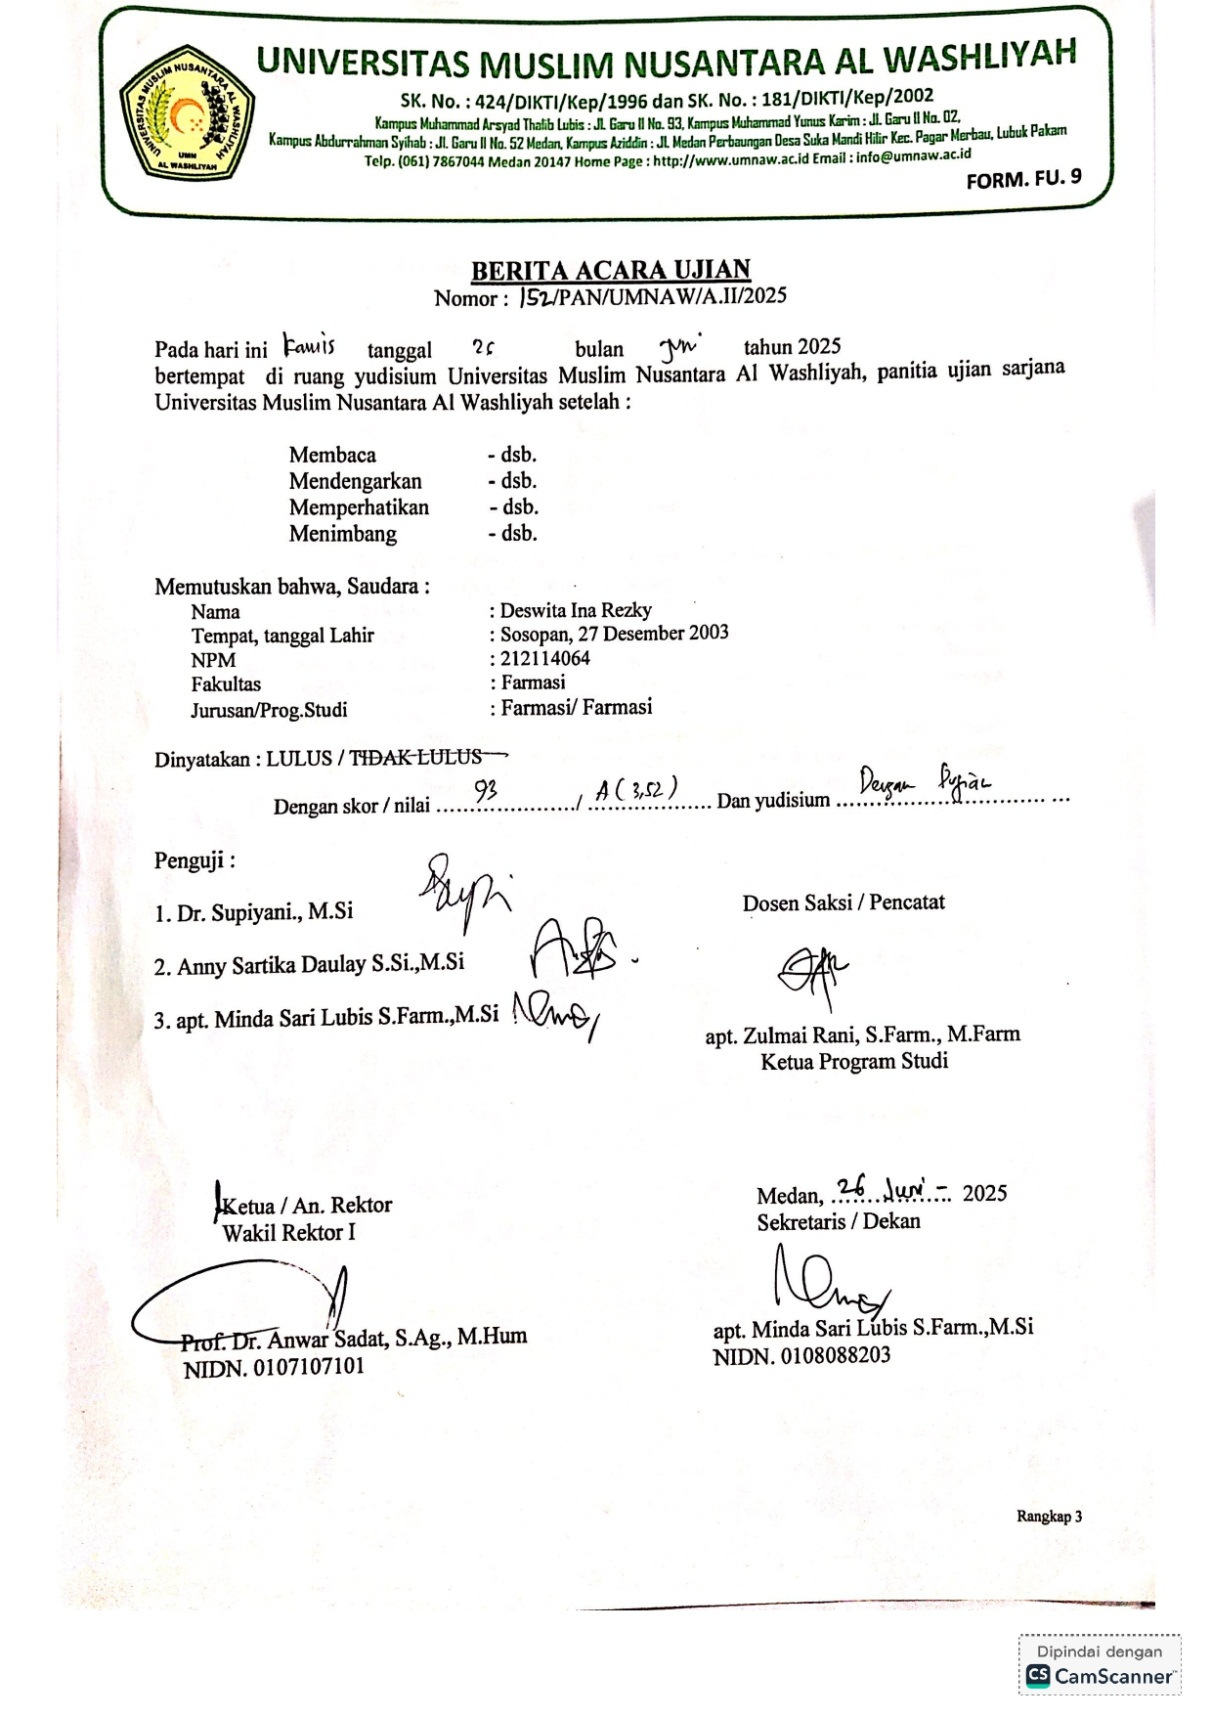 UNIVERSITAS MUSLIM NUSANTARA AL WASHLIYAH
SK. No. : 424/DIKTI/Kep/1996 dan SK. No. : 181/DIKTI/Kep/2002
Kampus Muhammad Arsyad Thalib Lubis : Jl. Garu II No. 93, Kampus Muhammad Yunus Karim : Jl. Garu II No. 02,
Kampus Abdurrahman Syihab : Jl. Garu II No. 52 Medan, Kampus Aziddin : Jl. Medan Perbaungan Desa Suka Mandi Hilir Kec. Pagar Merbau, Lubuk Pakam
Telp. (061) 7867044 Medan 20147 Home Page : http://www.umnaw.ac.id Email : info@umnaw.ac.id
UNIVERSITAS MUSLIM NUSANTARA AL WASHLIYAH
UMN
AL WASHLIYAH
FORM. FU. 9
BERITA ACARA UJIAN
Nomor : 152/PAN/UMNAW/A.II/2025
Pada hari ini Kamis tanggal 26 bulan Juni tahun 2025
bertempat di ruang yudisium Universitas Muslim Nusantara Al Washliyah, panitia ujian sarjana
Universitas Muslim Nusantara Al Washliyah setelah :
Membaca - dsb.
Mendengarkan - dsb.
Memperhatikan - dsb.
Menimbang - dsb.
Memutuskan bahwa, Saudara :
Nama : Deswita Ina Rezky
Tempat, tanggal Lahir : Sosopan, 27 Desember 2003
NPM : 212114064
Fakultas : Farmasi
Jurusan/Prog.Studi : Farmasi/ Farmasi
Dinyatakan : LULUS / TIDAK LULUS
Dengan skor / nilai 93 / A (3,52) Dan yudisium Dengan Pujian
Penguji :
1. Dr. Supiyani., M.Si
2. Anny Sartika Daulay S.Si.,M.Si
3. apt. Minda Sari Lubis S.Farm.,M.Si
Dosen Saksi / Pencatat
apt. Zulmai Rani, S.Farm., M.Farm
Ketua Program Studi
Ketua / An. Rektor
Wakil Rektor I
Prof. Dr. Anwar Sadat, S.Ag., M.Hum
NIDN. 0107107101
Medan, 26 Juni - 2025
Sekretaris / Dekan
apt. Minda Sari Lubis S.Farm.,M.Si
NIDN. 0108088203
Rangkap 3
Dipindai dengan
CS CamScanner